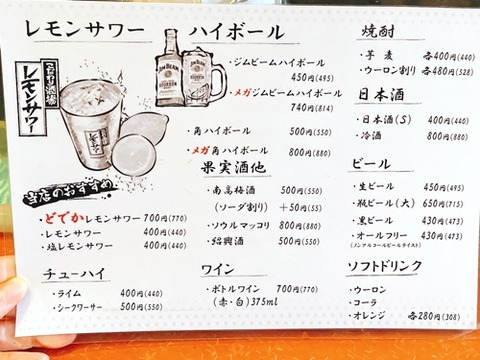 レモンサワー
こだわり酒場
レモンサワー
当店のおすすめ
・どでかレモンサワー 700円(770)
・レモンサワー 400円(440)
・塩レモンサワー 400円(440)
チューハイ
・ライム 400円(440)
・シークワーサー 500円(550)
ハイボール
JIM BEAM
BOURBON
・ジムビームハイボール
450円(495)
・メガジムビームハイボール
740円(814)
・角ハイボール 500円(550)
・メガ角ハイボール 800円(880)
果実酒他
・南高梅酒 500円(550)
(ソーダ割り) +50円(55)
・ソウルマッコリ 800円(880)
・紹興酒 500円(550)
ワイン
・ボトルワイン 700円(770)
(赤・白)375ml
焼酎
・芋 麦 各400円(440)
・ウーロン割り 各480円(528)
日本酒
・日本酒(S) 400円(440)
・冷酒 800円(880)
ビール
・生ビール 450円(495)
・瓶ビール(大) 650円(715)
・黒ビール 430円(473)
・オールフリー 430円(473)
(ノンアルコールビールテイスト)
ソフトドリンク
・ウーロン
・コーラ
・オレンジ 各280円(308)